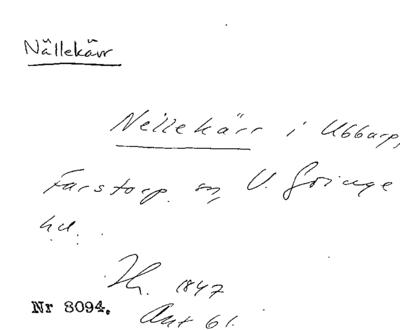 Nällekärr
Nellekärr i Ubbarp,
Farstorp sn, V. Göinge
hd.
1847
Nr 8094. Akt 61.